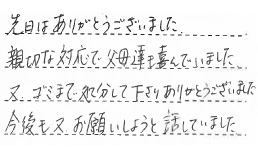 先日はありがとうございました
親切な対応で父母達も喜んでいました
又、ゴミまで処分して下さりありがとうございました
今後も又お願いしようと話していました